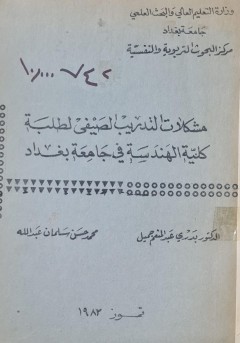 وزارة التعليم العالي والبحث العلمي
جامعة بغداد
مركز البحوث التربوية والنفسية
١٠,٠٠٠ ٧٤٢
مشكلات التدريب الصيفي لطلبة
كلية الهندسة في جامعة بغداد
الدكتور بدري عبد المنعم جميل
محمد حسن سلمان عبدالله
تموز ١٩٨٣